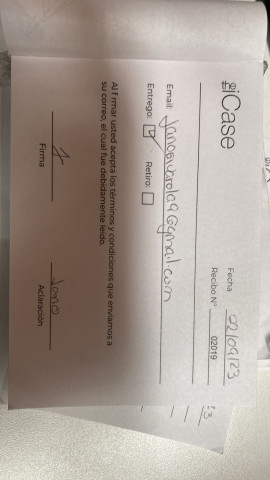 iCase
Fecha 02/09/23
Recibo N° 02019
Email: @gmail.com
Entrego: Retiro:
Al firmar usted acepta los términos y condiciones que enviamos a
su correo, el cual fue debidamente leído.
Jano
Firma Aclaración